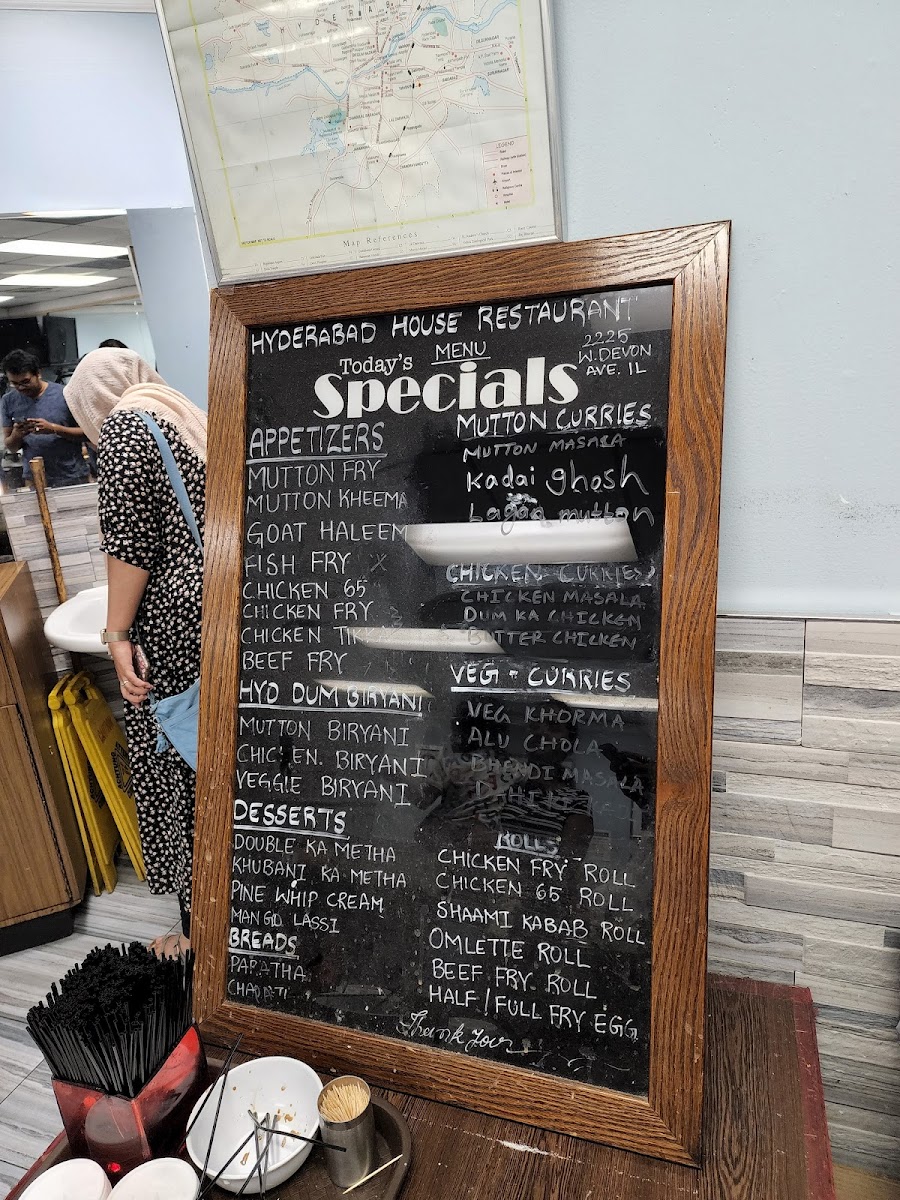 Map References
LEGEND
HYDERABAD HOUSE RESTAURANT
MENU
2225
W. DEVON
AVE. IL
Today's
Specials
APPETIZERS
MUTTON FRY
MUTTON KHEEMA
GOAT HALEEM
FISH FRY X
CHICKEN 65
CHICKEN FRY
CHICKEN
BEEF FRY
HYD DUM BIRYANI
MUTTON BIRYANI
CHICKEN. BIRYANI
VEGGIE BIRYANI
DESSERTS
DOUBLE KA METHA
KHUBANI KA METHA
PINE WHIP CREAM
MANGO LASSI
BREADS
PARATHA
CHAPATI
MUTTON CURRIES
MUTTON MASALA
Kadai ghosh
bagan mutton
CHICKEN CURRIES
CHICKEN MASALA
DUM KA CHICKEN
BUTTER CHICKEN
VEG - CURRIES
VEG KHORMA
ALU CHOLA
BHENDI MASALA
ROLLS
CHICKEN FRY ROLL
CHICKEN 65 ROLL
SHAAMI KABAB ROLL
OMLETTE ROLL
BEEF FRY ROLL
HALF / FULL FRY EGG
Thank You